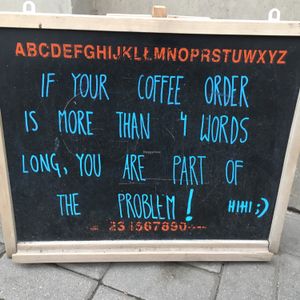 ABCDEFGHIJKLŁMNOPRSTUWXYZ
IF YOUR COFFEE ORDER
IS MORE THAN 4 WORDS
LONG, YOU ARE PART OF
THE PROBLEM! HIHI ;)
234567890